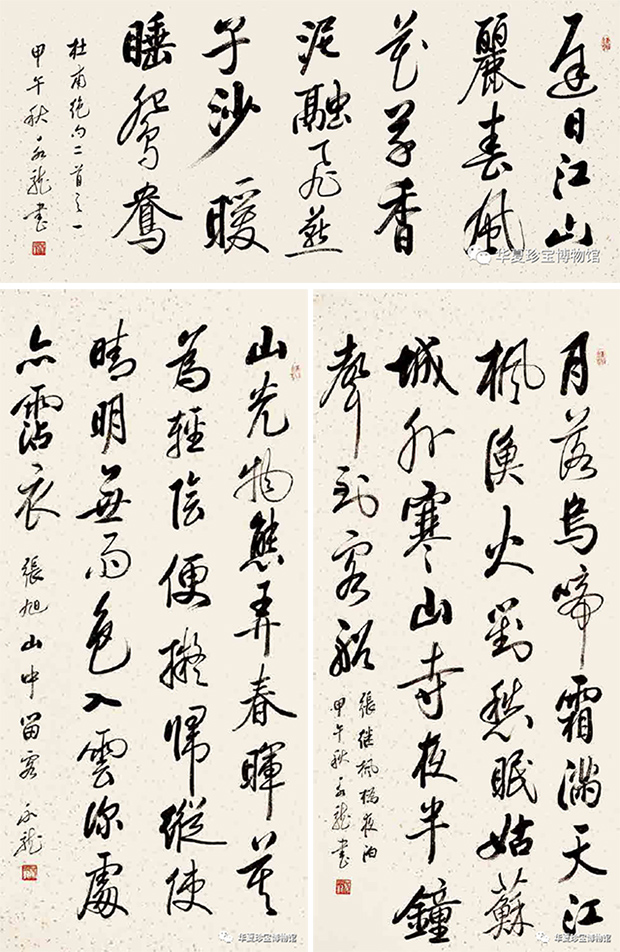 遲日江山
麗春風
花草香
泥融飛燕
子沙暖
睡鴛鴦
杜甫絕句二首之一
甲午秋永龍書
华夏珍宝博物馆
月落烏啼霜滿天江
楓漁火對愁眠姑蘇
城外寒山寺夜半鐘
聲到客船
張继楓橋夜泊
甲午秋永龍書
华夏珍宝博物馆
山光物態弄春暉莫
為輕陰便擬歸縱使
晴明無雨色入雲深處
亦霑衣
張旭山中留客 永龍
华夏珍宝博物馆